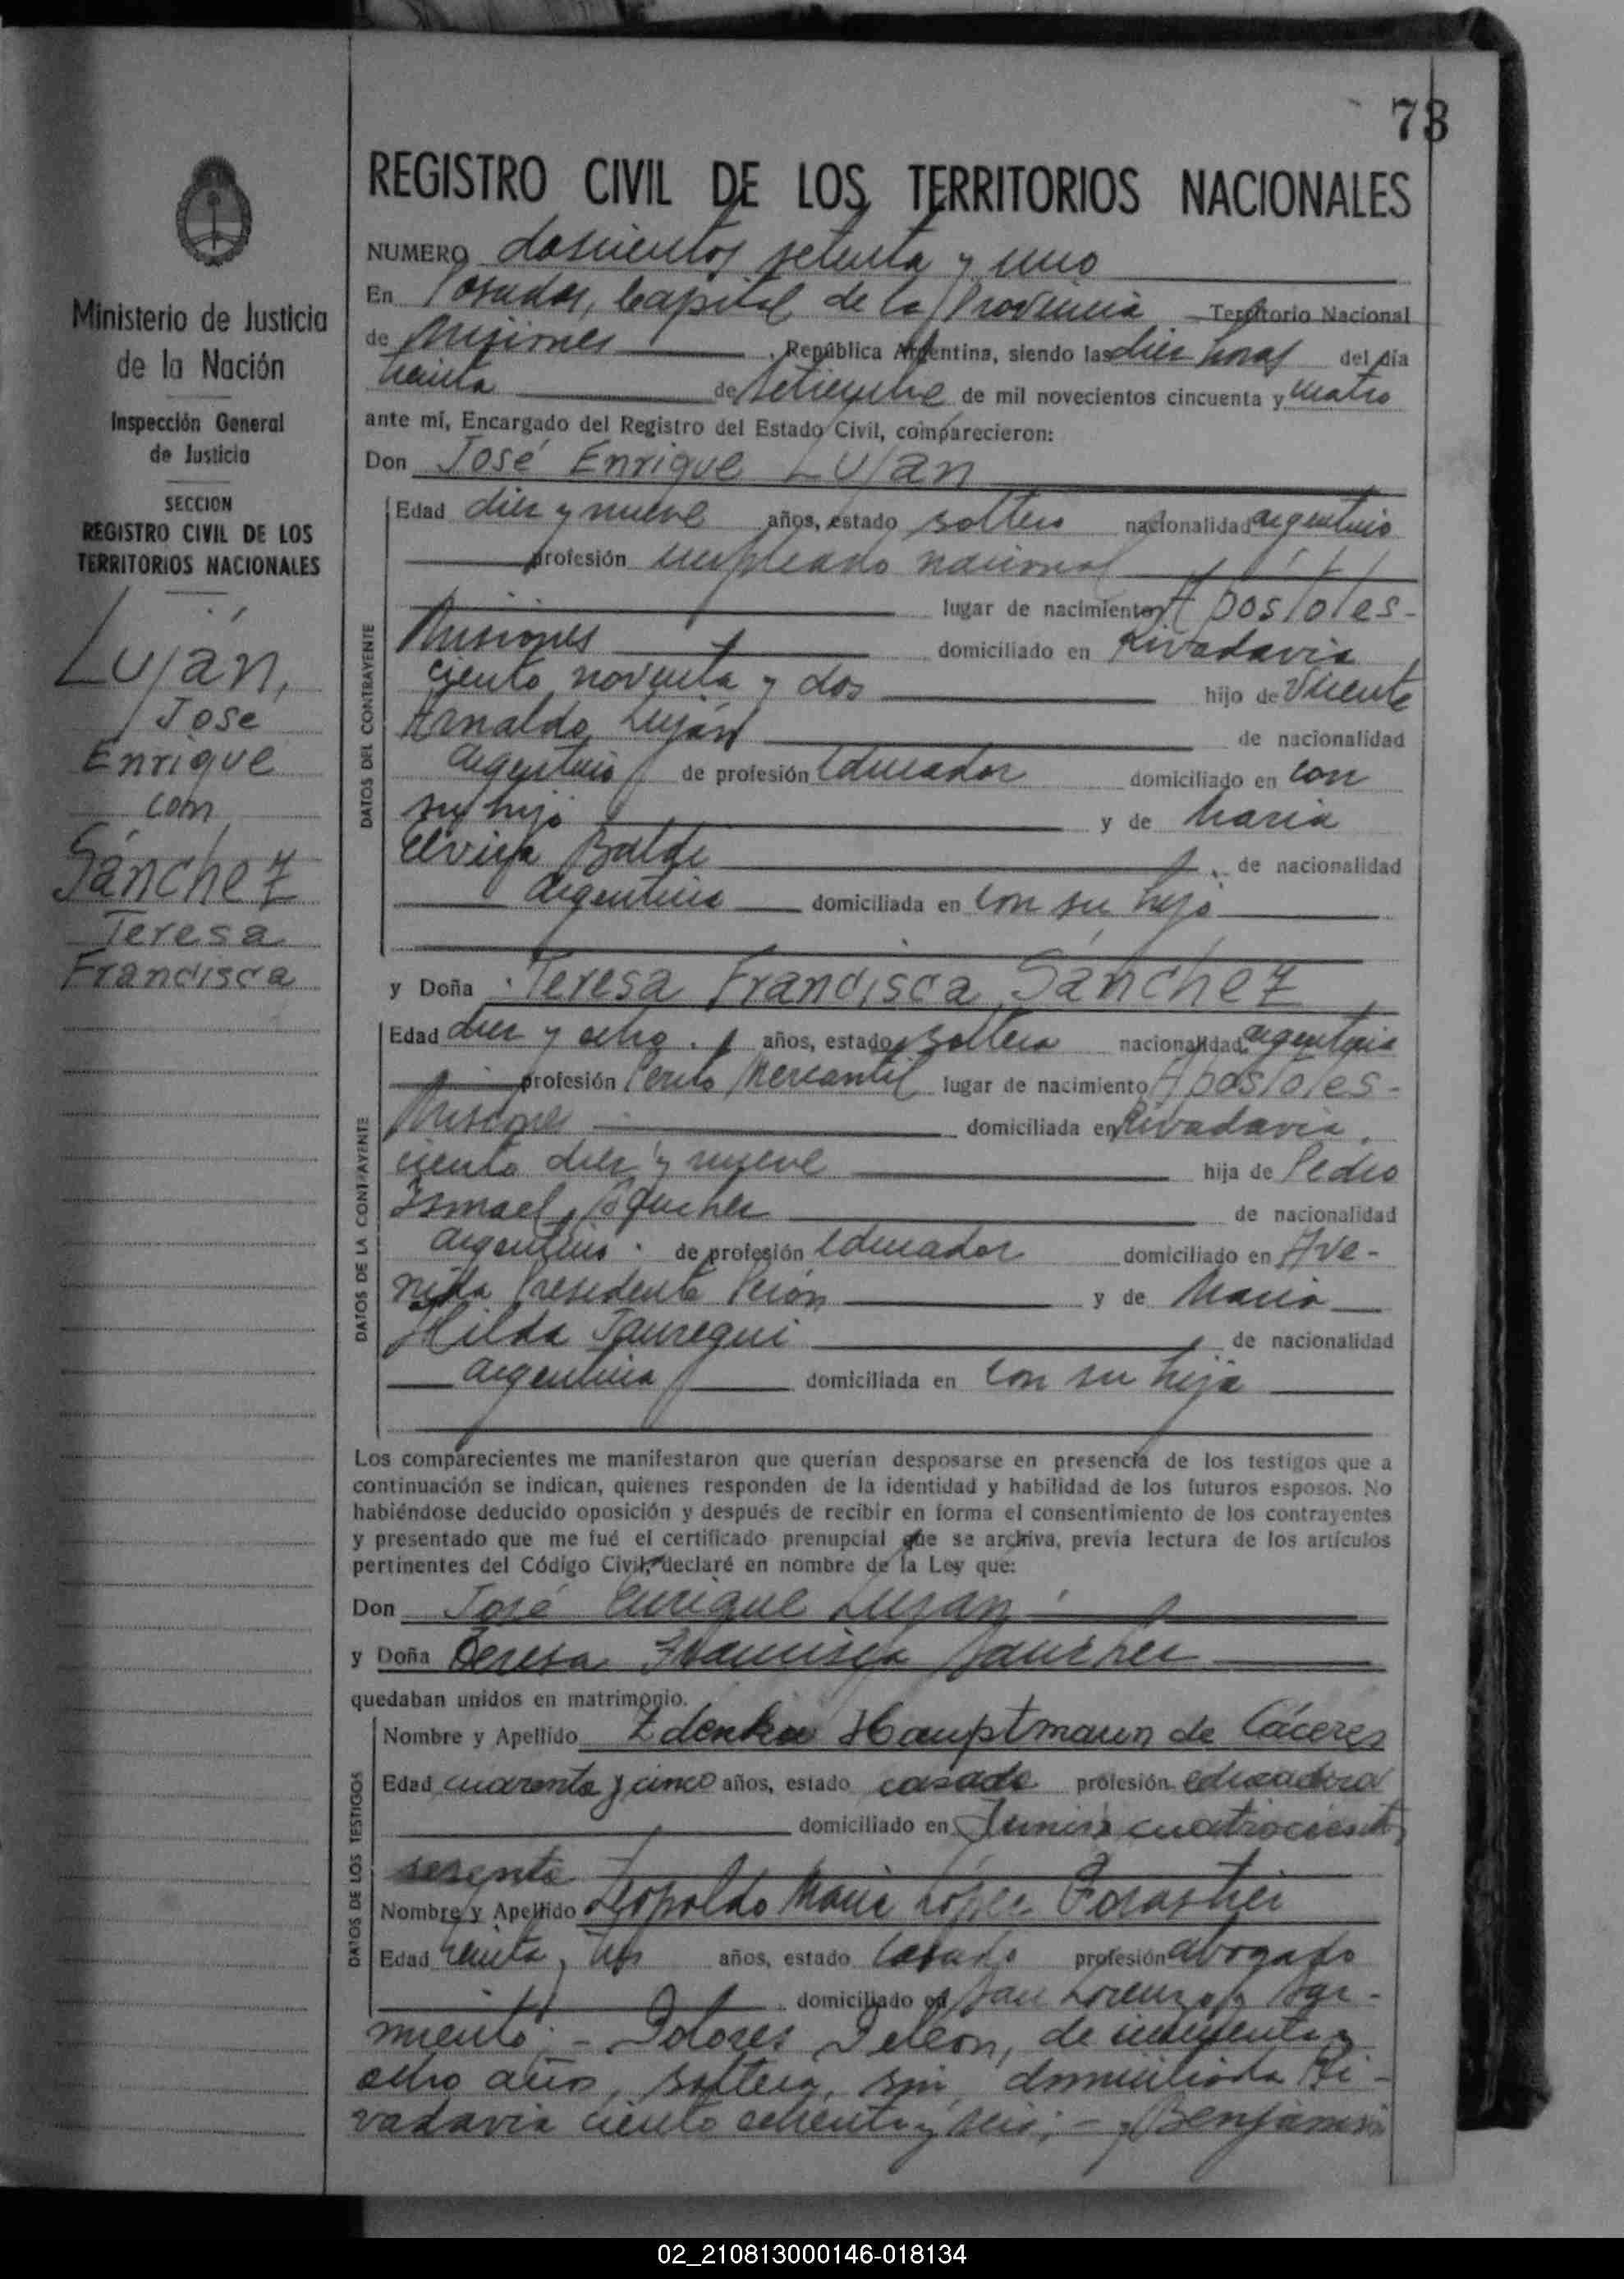 73
REGISTRO CIVIL DE LOS TERRITORIOS NACIONALES
Ministerio de Justicia
de la Nación
Inspección General
de Justicia
SECCION
REGISTRO CIVIL DE LOS
TERRITORIOS NACIONALES
Luján,
José
Enrique
con
Sánchez
Teresa
Francisca
NUMERO doscientos setenta y uno
En Posadas, Capital de la Provincia Territorio Nacional
de Misiones, República Argentina, siendo las diez horas del día
treinta de setiembre de mil novecientos cincuenta y cuatro
ante mí, Encargado del Registro del Estado Civil, comparecieron:
Don José Enrique Luján
DATOS DEL CONTRAYENTE
Edad diez y nueve años, estado soltero nacionalidad argentino
profesión empleado nacional
lugar de nacimiento Apóstoles-
Misiones domiciliado en Rivadavia
ciento noventa y dos hijo de Vicente
Arnaldo Luján de nacionalidad
argentino de profesión Educador domiciliado en con
su hijo y de María
Elvira Baldi de nacionalidad
argentina domiciliada en con su hijo
y Doña Teresa Francisca Sánchez
DATOS DE LA CONTRAYENTE
Edad diez y ocho años, estado soltera nacionalidad argentina
profesión Perito Mercantil lugar de nacimiento Apóstoles-
Misiones domiciliada en Rivadavia
ciento diez y nueve hija de Pedro
Ismael Sánchez de nacionalidad
argentino de profesión Educador domiciliado en Ave-
nida Presidente Perón y de María
Hilda Jauregui de nacionalidad
argentina domiciliada en con su hija
Los comparecientes me manifestaron que querían desposarse en presencia de los testigos que a
continuación se indican, quienes responden de la identidad y habilidad de los futuros esposos. No
habiéndose deducido oposición y después de recibir en forma el consentimiento de los contrayentes
y presentado que me fué el certificado prenupcial que se archiva, previa lectura de los artículos
pertinentes del Código Civil, declaré en nombre de la Ley que:
Don José Enrique Luján
y Doña Teresa Francisca Sánchez
quedaban unidos en matrimonio.
DATOS DE LOS TESTIGOS
Nombre y Apellido Zdenka Hauptmann de Cáceres
Edad cuarenta y cinco años, estado casada profesión educadora
domiciliado en Junín cuatrocientos
sesenta
Nombre y Apellido Leopoldo María López Forastier
Edad treinta y tres años, estado casado profesión abogado
domiciliado en San Lorenzo y Sar-
miento; - Dolores Deleon, de cincuenta y
ocho años, soltera, sin domiciliada Ri-
vadavia ciento ochenta y seis; - y Benjamín
02_210813000146-018134